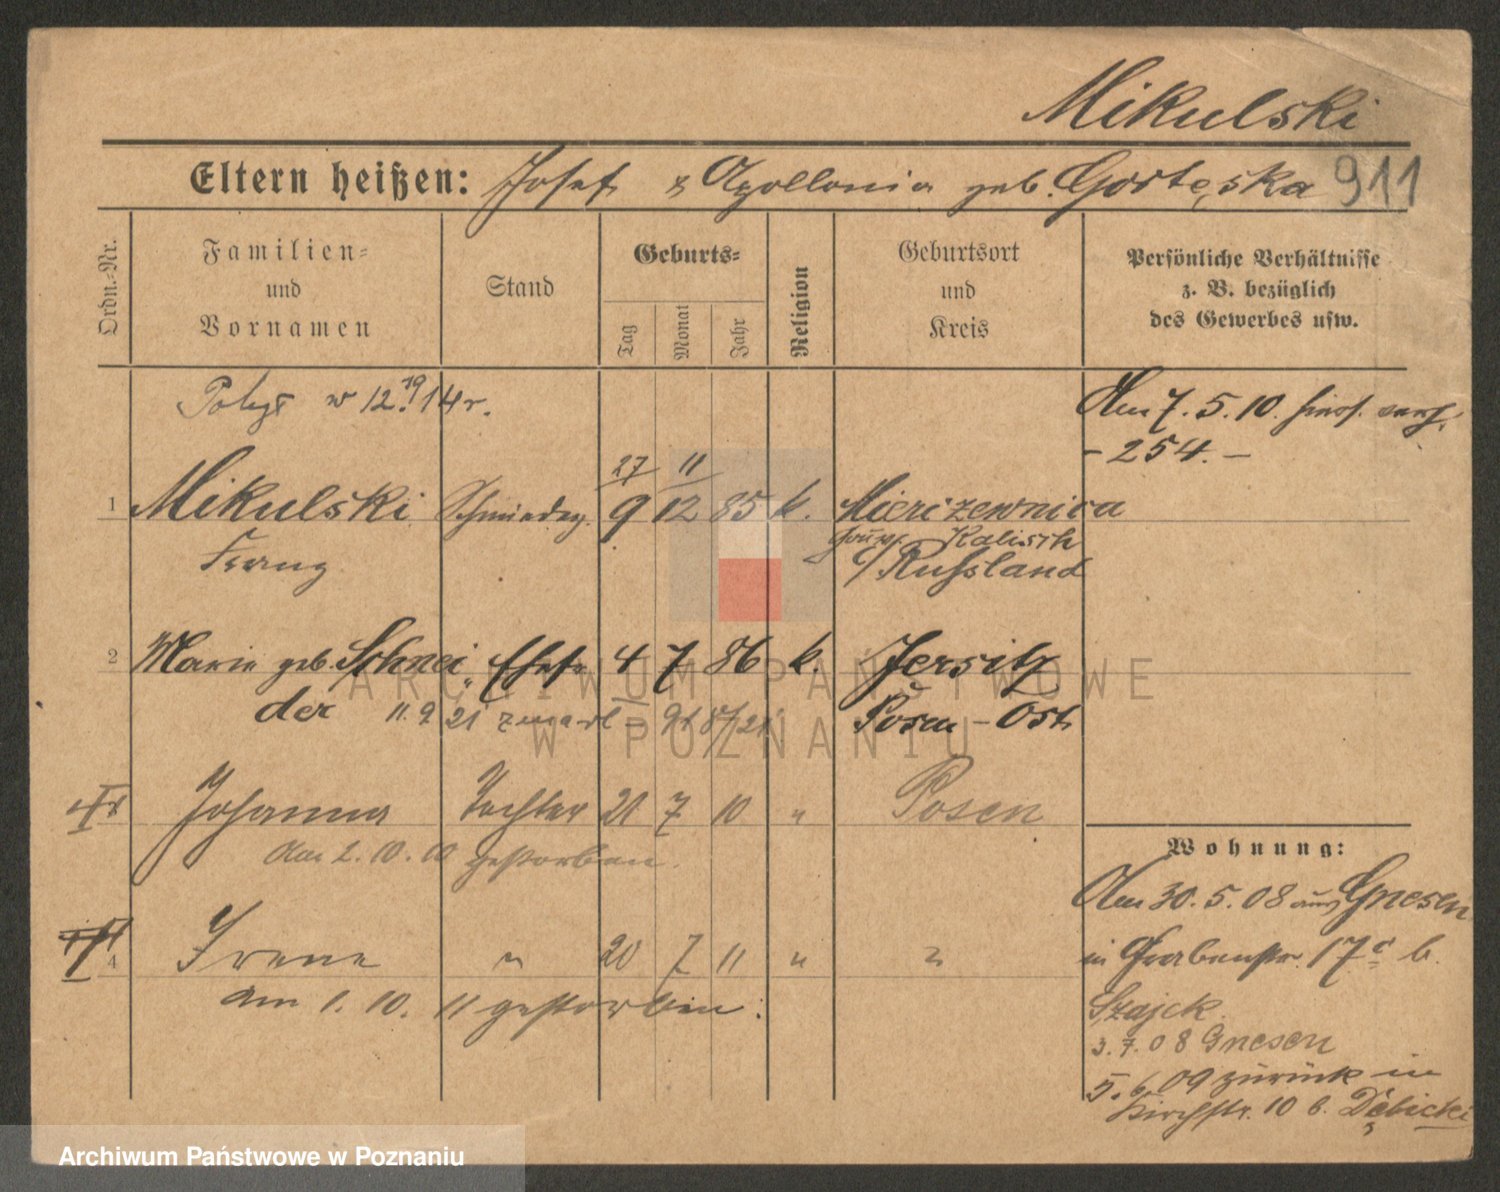 Mikulski
Eltern heißen: Josef & Apollonia geb. Gorteska 911
Ordn.-Nr.
Familien-
und
Vornamen
Stand
Geburts-
Tag
Monat
Jahr
Religion
Geburtsort
und
Kreis
Persönliche Verhältnisse
z. B. bezüglich
des Gewerbes usw.
w 12. 19 14 r.
Am 7. 5. 10.
- 254. -
27 11
1 Mikulski 9 12 85 k. Mierizewnica
Franz
Gouv. Kalisch
Russland
2 Marie geb. Schnei- Ehefr. 4 7 86 k. Jersitz
der
11. 9 21 zmarł
Posen - Ost
Johanna Tochter 21 7 10 " Posen
Am 2. 10. 10 gestorben.
4 Irene " 20 7 11 " "
am 1. 10. 11 gestorben.
Wohnung:
Am 30. 5. 08 aus Gnesen
in Grabenstr. 17 b.
Szajek
3. 7. 08 Gnesen
5. 6. 09 zurück in
Kirchstr. 10 b. Dębicki
ARCHIWUM PAŃSTWOWE
W POZNANIU
Archiwum Państwowe w Poznaniu